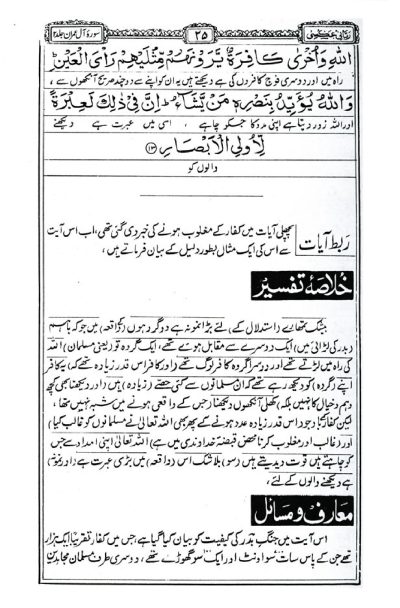 معارف القرآن جلد دوم
۲۵
سورۂ آل عمران ۳ : ۱۳
اللهِ وَاُخْرٰى كَافِرَةٌ يَّرَوْنَهُمْ مِّثْلَيْهِمْ رَاْىَ الْعَيْنِ ؕ
راہ میں اور دوسری فوج کافروں کی ہے دیکھتے ہیں یہ ان کو اپنے سے دو چند صریح آنکھوں سے ،
وَاللهُ يُؤَيِّدُ بِنَصْرِهٖ مَنْ يَّشَآءُ ؕ اِنَّ فِىْ ذٰلِكَ لَعِبْرَةً
اور اللہ زور دیتا ہے اپنی مدد کا جس کو چاہے ، اسی میں عبرت ہے دیکھنے
لِّاُولِى الْاَبْصَارِ (۱۳)
والوں کو
ربط آیات
پچھلی آیات میں کفار کے مغلوب ہونے کی خبر دی گئی تھی ، اب اس آیت
سے اس کی ایک مثال بطور دلیل کے بیان فرماتے ہیں ،
خلاصۂ تفسیر
بیشک تمھارے (استدلال کے) لئے بڑا نمونہ ہے دو گروہوں (کے واقعہ) میں جو کہ باہم
(بدر کی لڑائی میں) ایک دوسرے سے مقابل ہوئے تھے ، ایک گروہ تو (یعنی مسلمان) اللہ
کی راہ میں لڑتے تھے اور دوسرا گروہ کافر لوگ تھے (اور کافر اس قدر زیادہ تھے کہ) یہ کافر
اپنے (گروہ) کو دیکھ رہے تھے کہ ان مسلمانوں سے کئی حصے (زیادہ) ہیں (اور دیکھنا بھی کچھ
وہم و خیال کا نہیں بلکہ) کھلی آنکھوں دیکھنا (جس کے واقعی ہونے میں شبہ نہیں تھا ،
لیکن کفار کے باوجود اس قدر زیادہ عدد ہونے کے پھر بھی اللہ تعالیٰ نے مسلمانوں کو غالب کیا)
اور (غالب اور مغلوب کرنا محض قبضۂ خداوندی میں ہے) اللہ تعالیٰ اپنی امداد سے جس
کو چاہتے ہیں قوت دیدیتے ہیں (سو) بلاشک اس (واقعہ) میں بڑی عبرت ہے (اور نمونہ)
ہے دیکھنے والوں کے لئے ،
معارف و مسائل
اس آیت میں جنگ بدر کی کیفیت کو بیان کیا گیا ہے ، جس میں کفار تقریبًا ایک ہزار
تھے جن کے پاس سات سو اونٹ اور ایک سو گھوڑے تھے ، دوسری طرف مسلمان مجاہدین